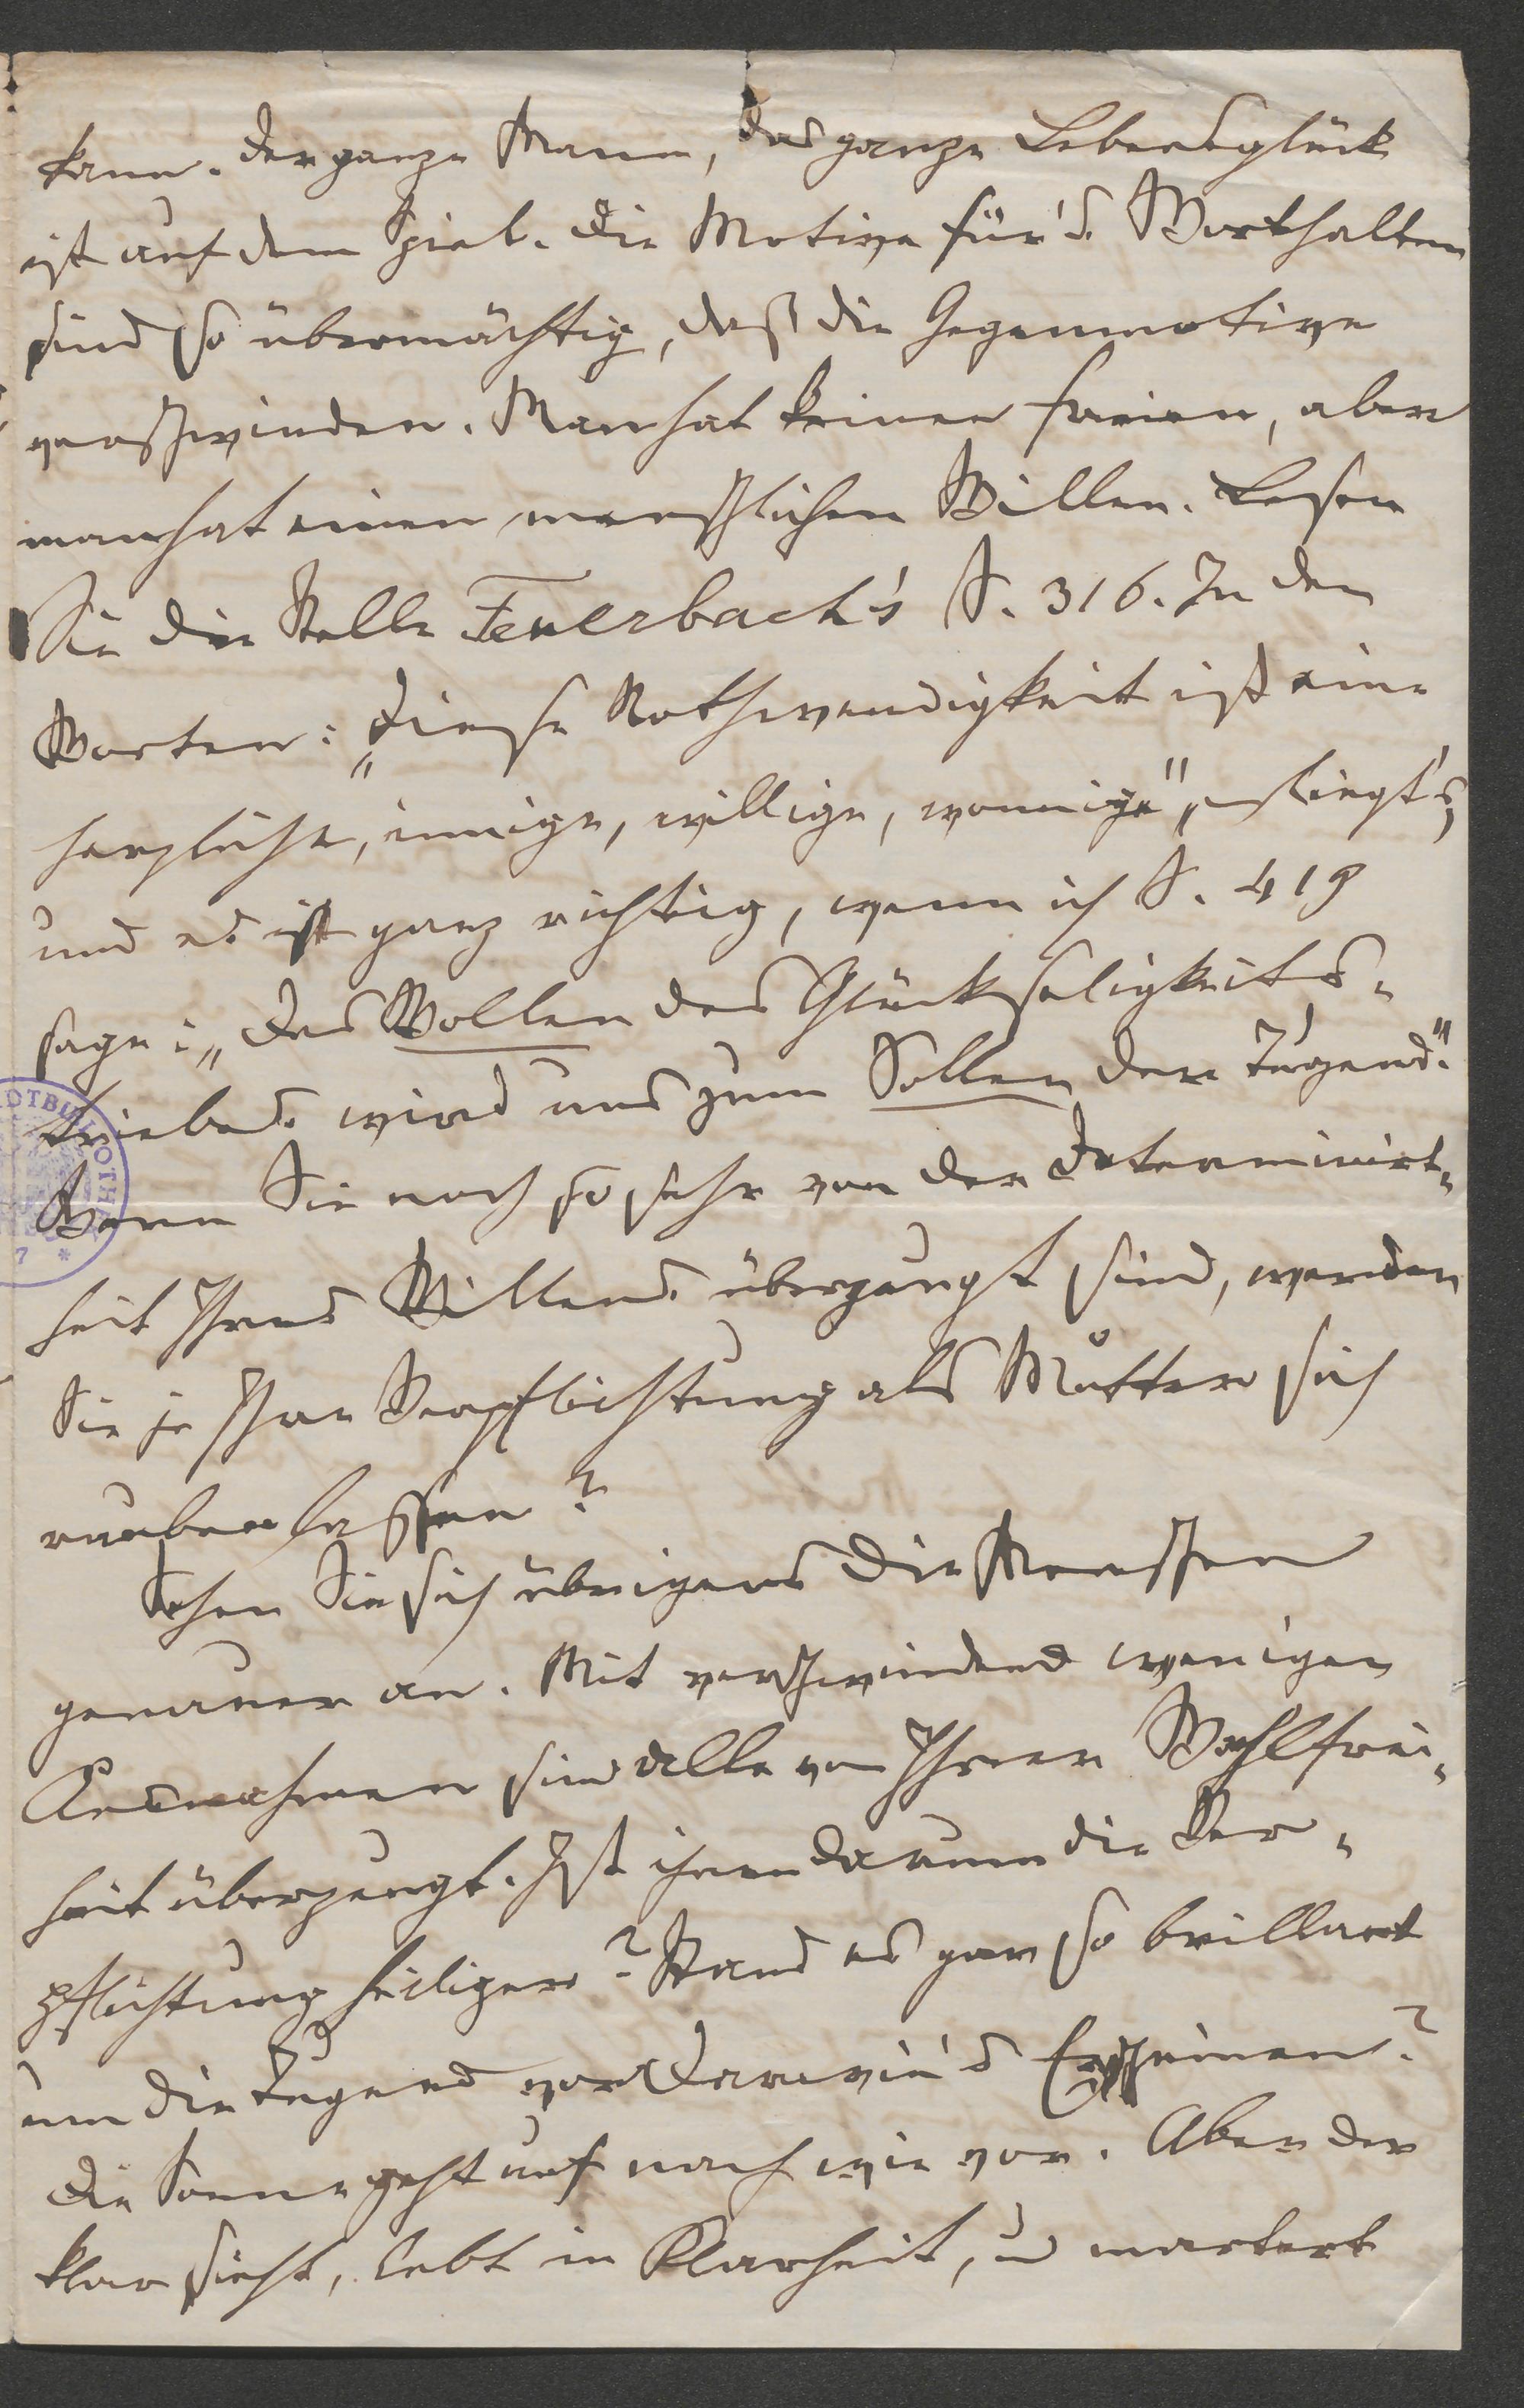 kann. Der ganze Mann, das ganze Lebensglück
ist auf dem Spiel. Die Motive für's Worthalten
sind so übermächtig, daß die Gegenmotive
verschwinden. Man hat keinen freien, aber
man hat einen menschlichen Willen. Lesen
Sie die Stelle Feuerbach's S. 316. In den
Worten: „Diese Nothwendigkeit ist eine
herzliche, innige, willige, wonnige“, liegt's,
und es ist ganz richtig, wenn ich S. 419
sage: „Das Wollen des Glückseligkeits-
triebes wird uns zum Sollen der Tugend.“
Wenn Sie noch so sehr von der Determinirt-
heit Ihres Willens überzeugt sind, werden
Sie je Ihre Verpflichtung als Mutter sich
rauben lassen?
Sehen Sie sich übrigens die Menschen
genauer an. Mit verschwindend wenigen
Ausnahmen sind alle von Ihrer Wahlfrei-
heit überzeugt. Ist ihnen darum die Ver-
pflichtung heiliger? Stand es gar so brillant
um die Tugend vor Darwin's Erscheinen?
Die Sonne geht auf nach wie vor. Aber der
klar sieht, lebt in Klarheit, u martert